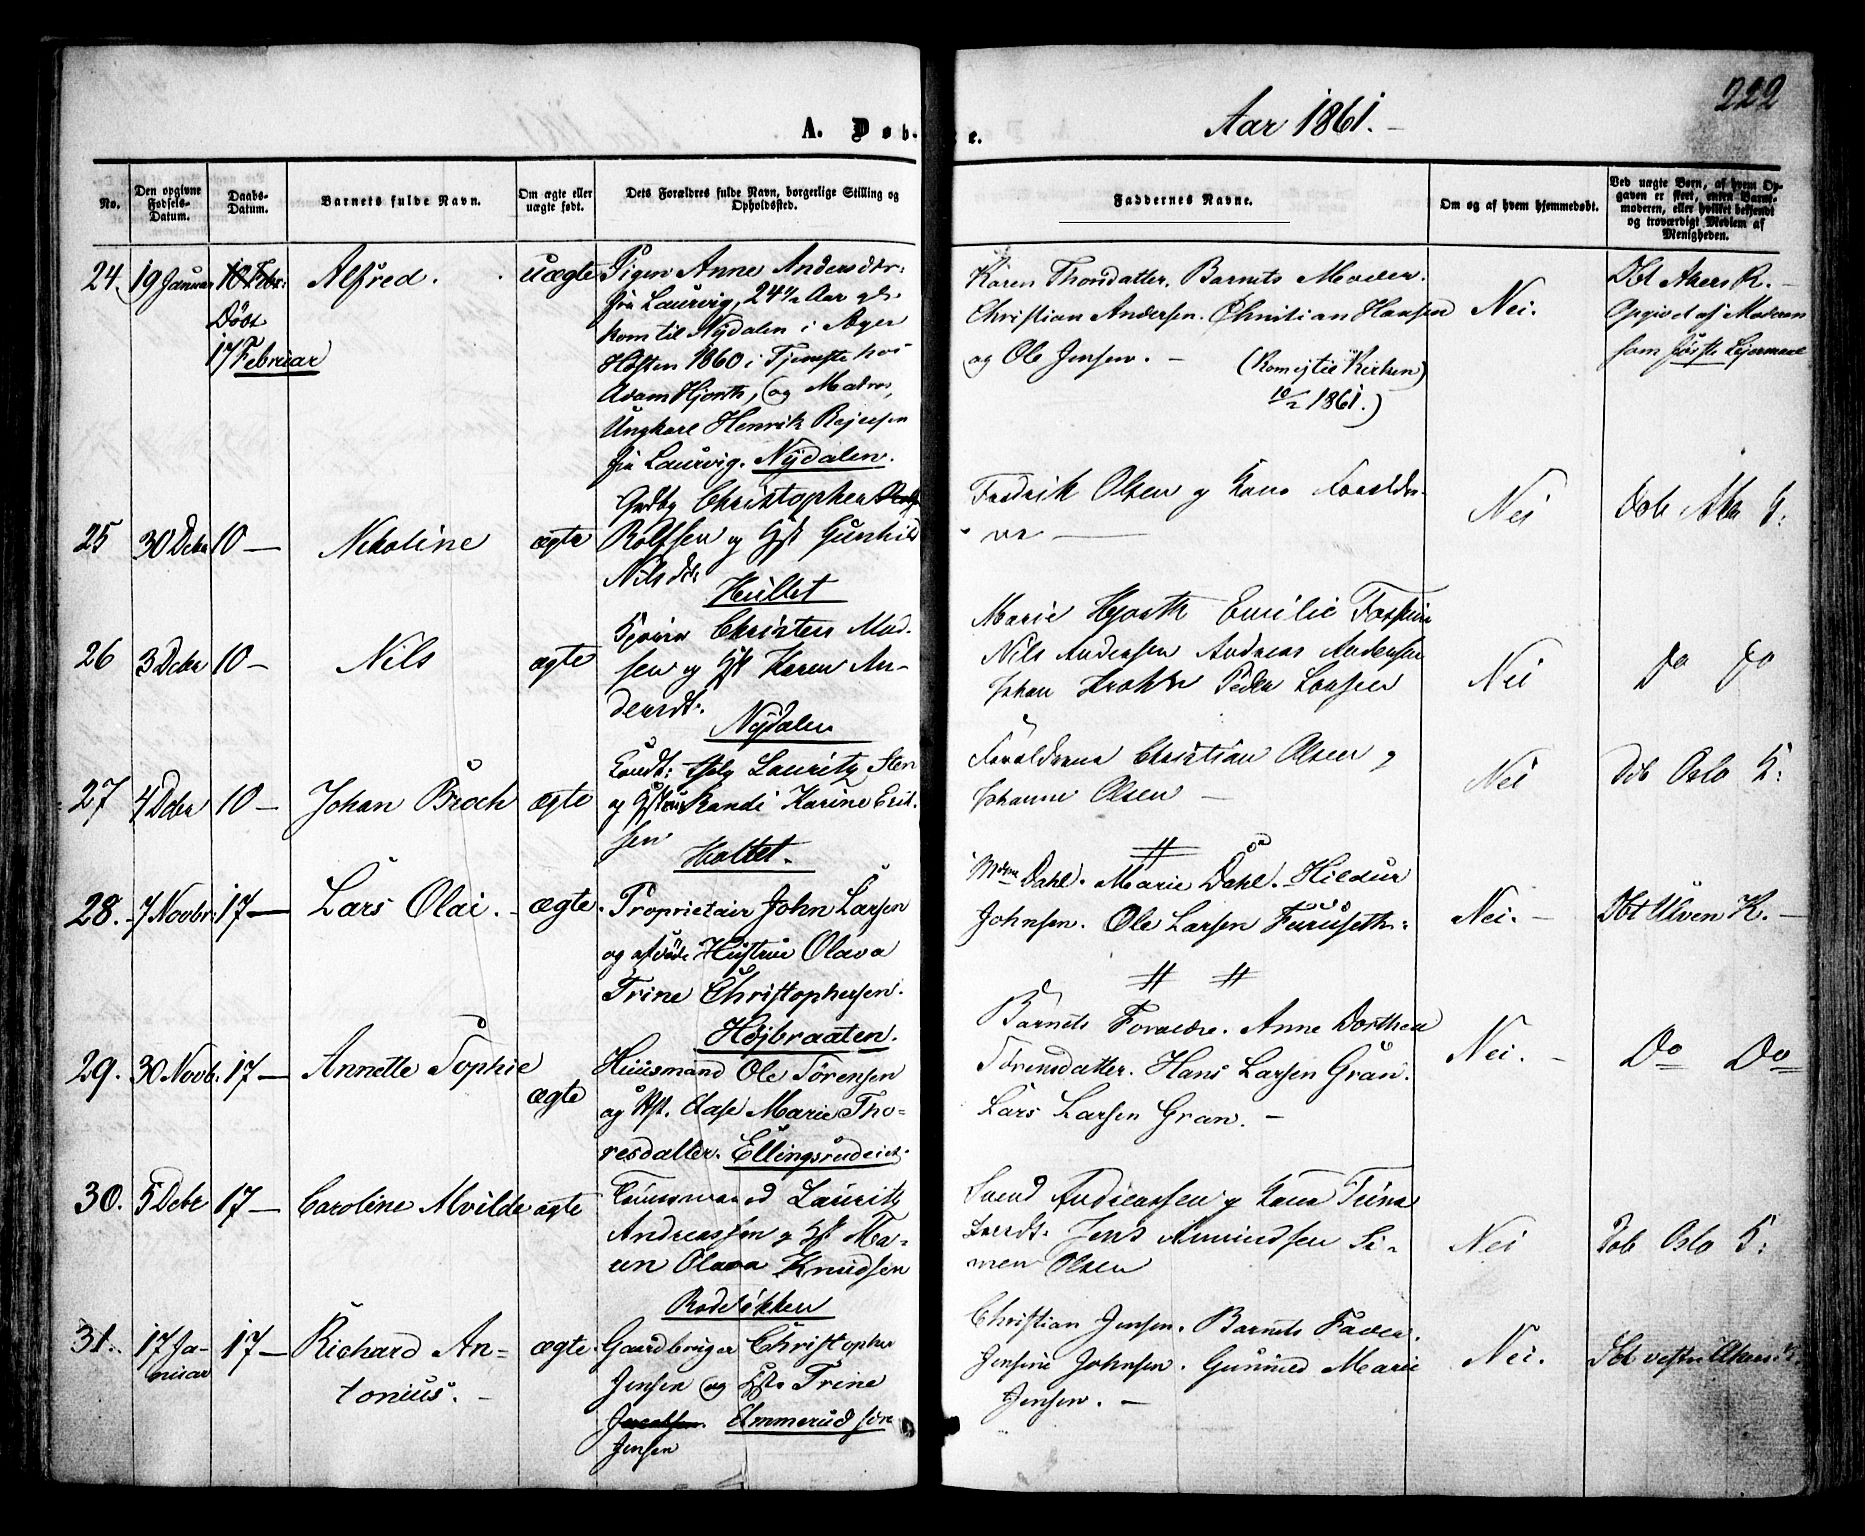 222
Aar 1861.
A. Døb.
e.
No.
Den opgivne Fødsels-Datum.
Daabs-Datum.
Barnets fulde Navn.
Om ægte eller uægte født.
Dets Forældres fulde Navn, borgerlige Stilling og Opholdssted.
Faddernes Navne.
Om og af hvem hjemmedøbt.
Ved uægte Børn, af hvem Opgaven er skeet, enten Barnemoderen, eller hvilket bekjendt og troværdigt Medlem af Menigheden.
24. 19 Januar 10 Febr: Alfred. uægte Pigen Anne Andersdtr:
Døbt
17 Februar
fra Laurvig, 24½ Aar gl.
kom til Nydalen i Ager
Høsten 1860 i Tjeneste hos
Adam Hjorth, og
Ungkarl Henrik
fra Laurvig. Nydalen.
Karen Thorsdatter. Barnets Moder.
Christian Andersen. Christian Hansen
og Ole Jensen. —
(Kom ej til Kirken)
10/2 1861.)
Nei.
Dbt Akers K. —
Opgivet af Moderen
som første Leiermaal
25 30 Decbr 10 — Nicoline ægte
Grdbr Christopher
Rolfsen og Hst Gunhild
Nilsdtr
Hullet
Fredrik Olsen og Kone Foreldre-
ne —
Nei
Dob Aker K:
26 3 Decbr 10 — Nils ægte
Christen Mad-
sen og Hst Karen An-
dersdt:
Nydalen
Marie Hjorth Emilie
Nils Andersen Andreas Andersen
Johan Krohn Peder Larsen
Nei
Do Do
27 4 Decbr 10 — Johan Broch ægte
Lauritz Sten
og Hstru Randi Karine Erik-
sen
Holtet.
Foreldrene Christian Olsen og
Johanne Olsen —
Nei
Dob Oslo K:
28. 7 Novbr: 17 — Lars Olai. — ægte.
Proprietair John Larsen
og afdøde Hustrue Olava
Trine Christophersen.
Højbraaten.
Mdme Dahl. Marie Dahl. Hildur
Johnsen. Ole Larsen Furuseth.
Nei. —
Dbt Ulven K. —
29. 30 Novb. 17 — Annette Sophie ægte
Huusmand Ole Sørensen
og Hst. Aase Marie Tho-
resdatter. Ellingsrudeiet.
Barnets Forældre. Anne Dorthea
Sørensdatter. Hans Larsen Gran.
Lars Larsen Gran. —
Nei. —
Do Do
30. 5 Decbr 17 — Caroline Mvilde ægte
Huusmand Lauritz
Andreassen og Hst Ma-
ren Olava Knudsen
Rodeløkken
Svend Andreassen og Kone Trine
Jens Amundsen Si-
men Olsen
Nei
Dob Oslo K:
31. 17 Ja-
nuar
17 — Richard An-
tonius. —
ægte.
Gaardbruger Christopher
Jensen og Hst. Trine
Jacobsen. Ammerud søre
Jensen
Christian Jensen. Barnets Fader.
Jensine Johnsen. Gunild Marie
Jensen. —
Nei.
Dbt vestre Akers K.